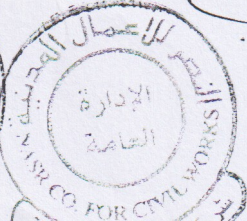 النصر للأعمال المدنية
الإدارة
العامة
NASR CO. FOR CIVIL WORKS